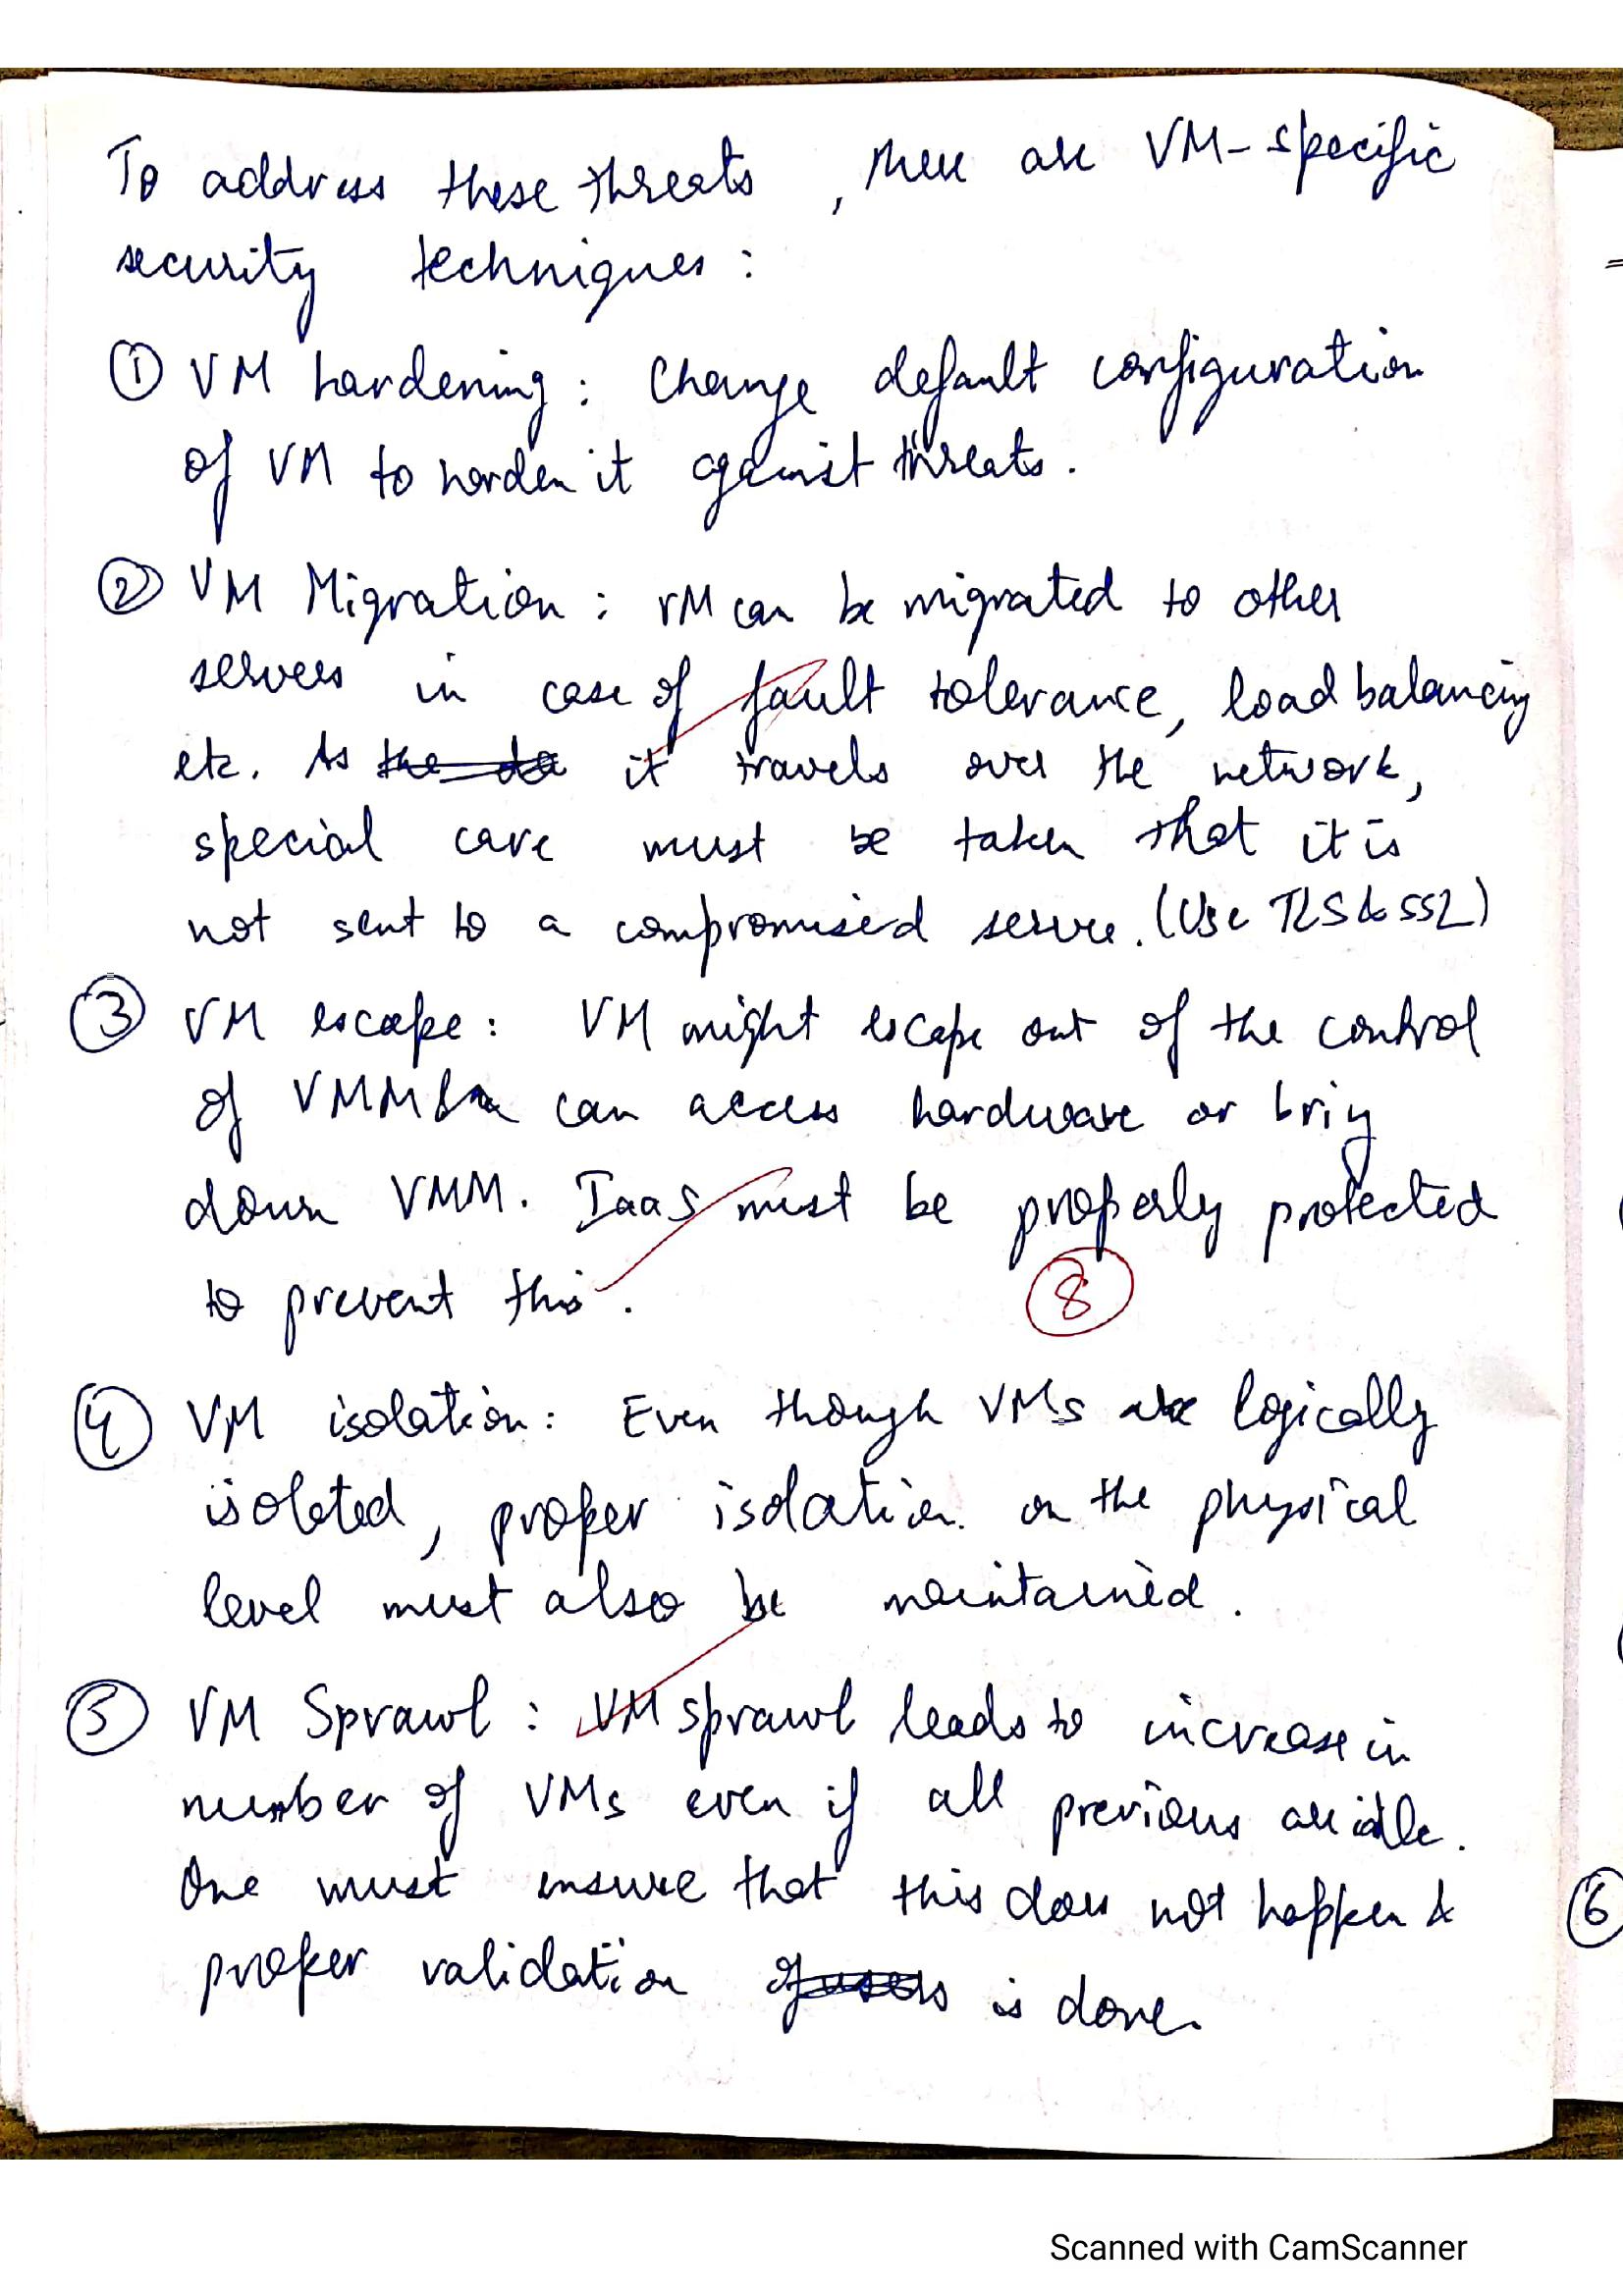 To address these threats, there are VM-specific
security techniques :
① VM hardening : Change default configuration
of VM to harden it against threats.
② VM Migration : VM can be migrated to other
servers in case of fault tolerance, load balancing
etc. As it travels over the network,
special care must be taken that it is
not sent to a compromised server. (Use TLS & SSL)
③ VM escape : VM might escape out of the control
of VMM & can access hardware or bring
down VMM. IaaS must be properly protected
to prevent this.
⑧
④ VM isolation : Even though VMs are logically
isolated, proper isolation on the physical
level must also be maintained.
⑤ VM Sprawl : VM sprawl leads to increase in
number of VMs even if all previous are idle.
One must ensure that this does not happen &
proper validation is done.
⑥
Scanned with CamScanner